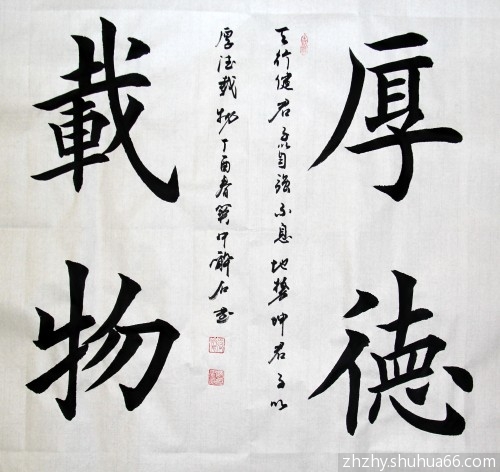 厚德
天行健君子以自强不息地势坤君子以
厚德载物丁酉春石书
載物
zhzhy.shuhua66.com